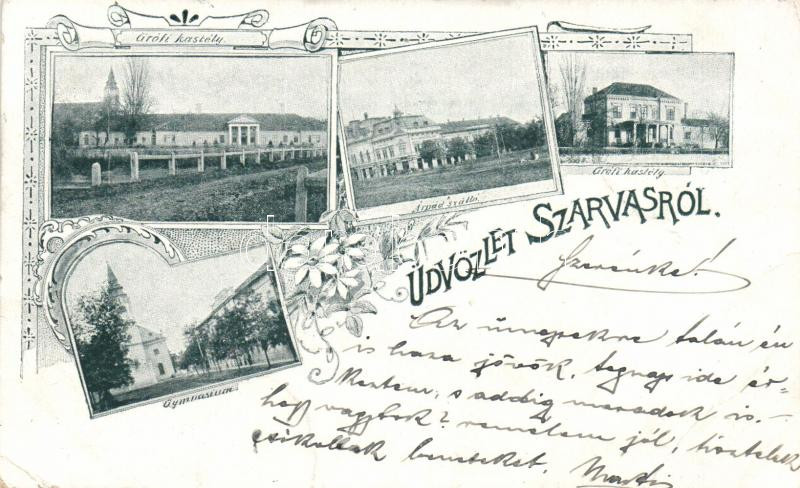 Grófi kastély.
Árpád szálló.
Grófi kastély.
Gymnasium.
ÜDVÖZLET SZARVASRÓL.
Szerénke!
Az ünnepekre talán én
is haza jövök, tegnap ide ér-
keztem, s addig maradok is.
hogy vagytok? remélem jól, tisztelek
csókollak benneteket.